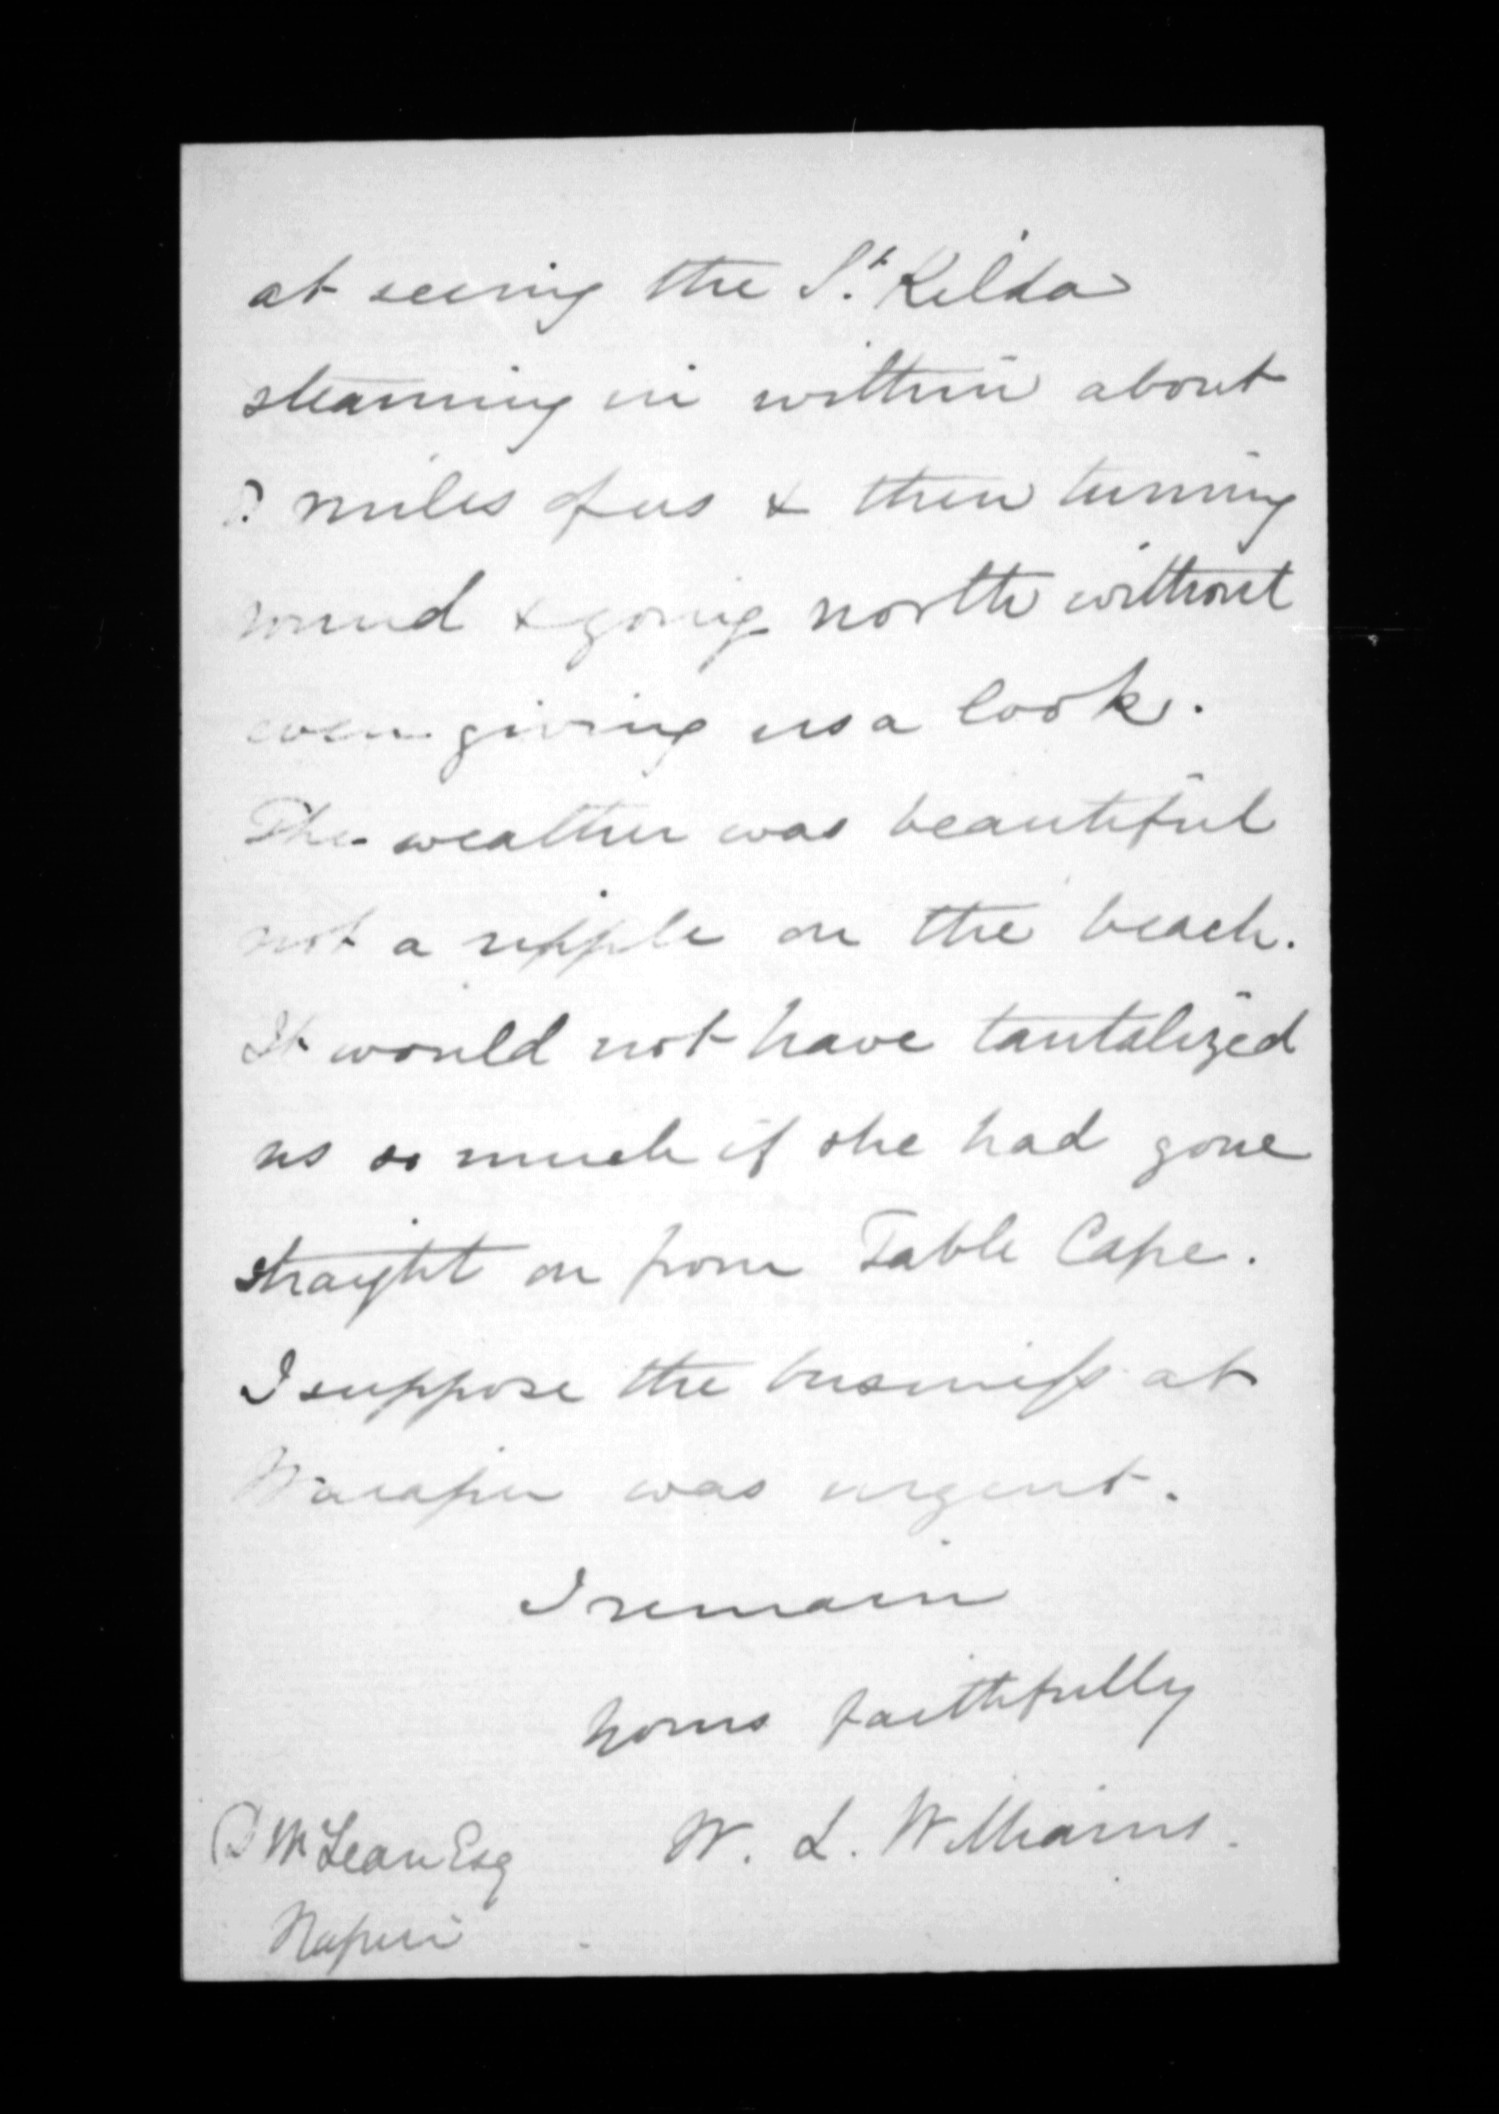 at seeing the St. Kilda
steaming in within about
miles of us & then turning
round & going north without
even giving us a look.
The weather was beautiful
not a ripple on the beach.
It would not have tantalized
us so much if she had gone
straight on from Table Cape.
I suppose the business at
Waiapu was urgent.
I remain
Yours faithfully
W. L. Williams.
D McLean Esq
Napier